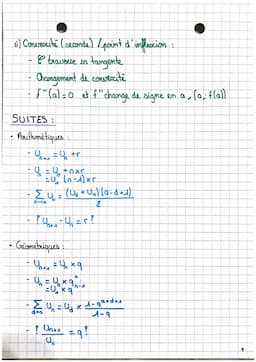 6) Convexité (seconde) / point d'inflexion :
- C traverse sa tangente
- Changement de convexité
- f''(a) = 0 et f'' change de signe en a, (a; f(a))
SUITES :
• Arithmétiques :
- Uₙ₊₁ = Uₙ + r
- Uₙ = U₀ + n×r
= U₁ + (n-1)×r
- Σ Uₙ =
2
- ! Uₙ₊₁ - Uₙ = r !
• Géométriques :
- Uₙ₊₁ = Uₙ × q
- Uₙ = U₀ × qⁿ
= U₁ × qⁿ⁻¹
- Σ Uₙ =
1-q
- ! Uₙ₊₁ / Uₙ = q !